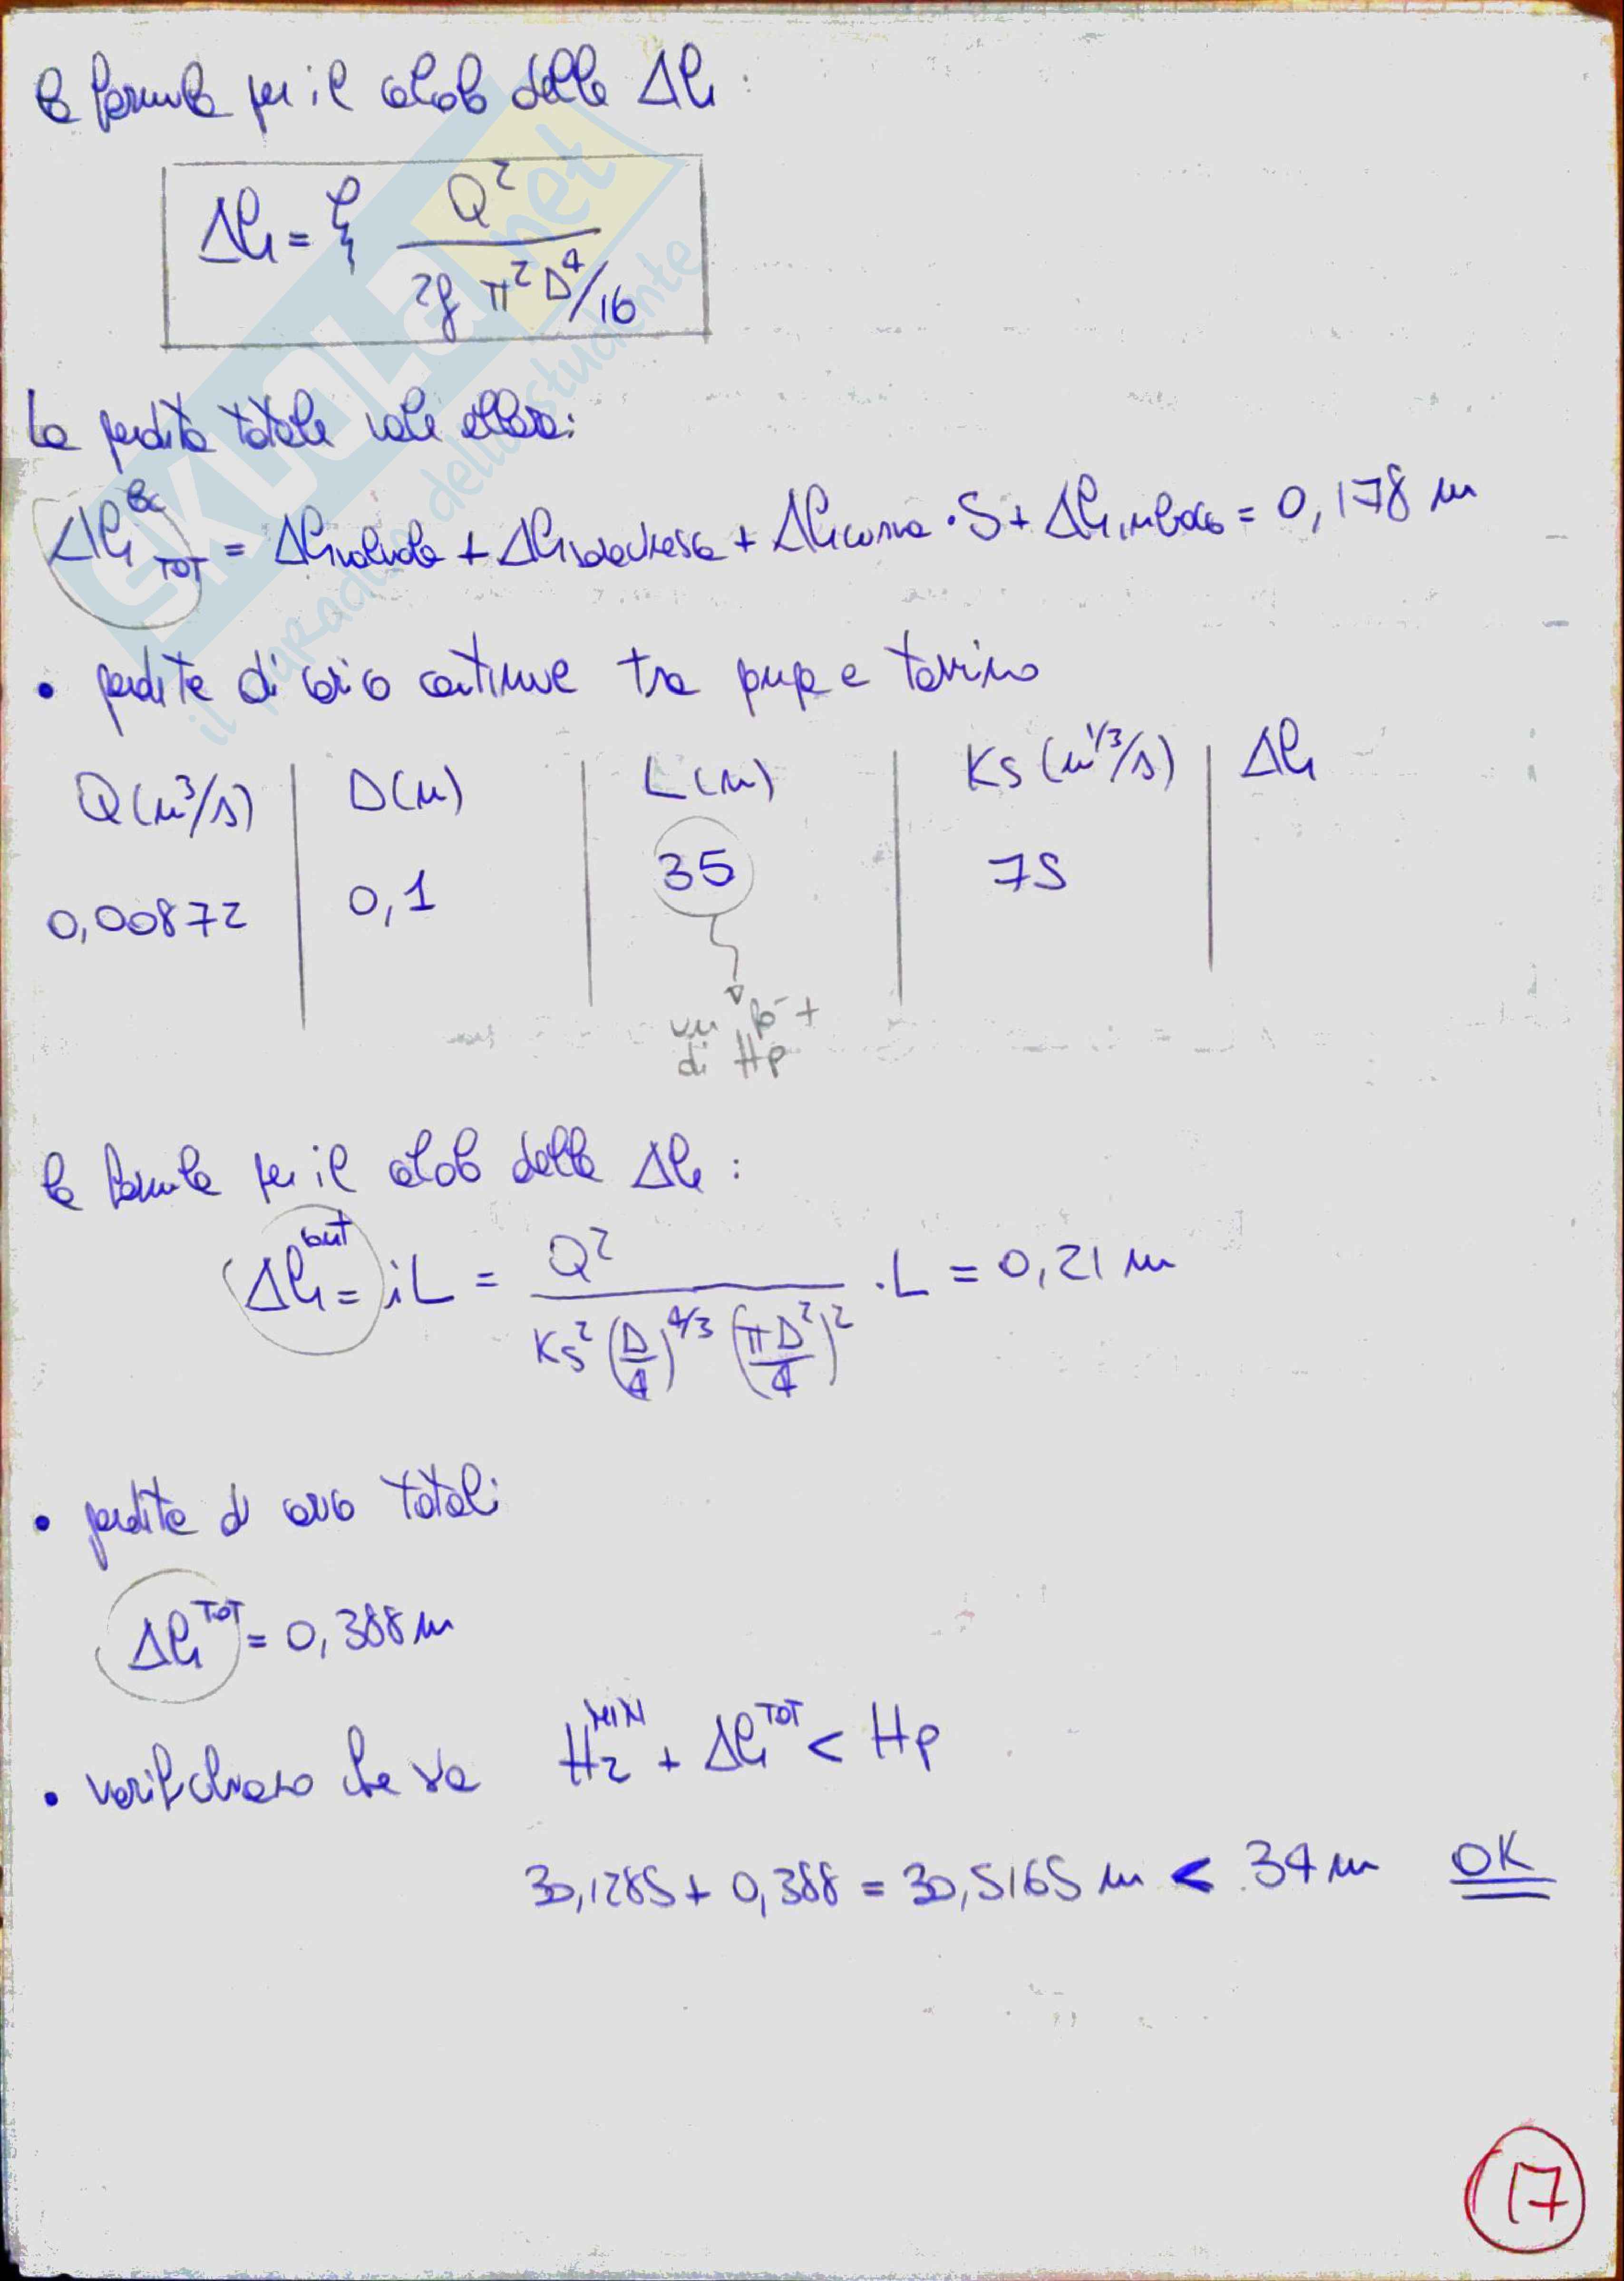 la formula per il calcolo delle Δh :
Δh = ξ Q² / 2g π² D⁴/16
La perdita totale vale allora:
Δh loc TOT = Δh valvola + Δh saracinesca + Δh curva · 5 + Δh imbocco = 0,178 m
• perdite di carico continue tra pompa e torrino
Q (m³/s) | D (m) | L (m) | Ks (m^1/3/s) | Δh
0,00872 | 0,1 | 35 | 75
un po' +
di Hp
la formula per il calcolo delle Δh :
Δh cont = iL = Q² / Ks² (D/4)^4/3 (πD²/4)² · L = 0,21 m
• perdite di carico totali
Δh TOT = 0,388 m
• verifichiamo che sia H₂ MIN + Δh TOT < Hp
30,1285 + 0,388 = 30,5165 m < 34 m OK
17
SKUOLa.net
il paradiso dello studente